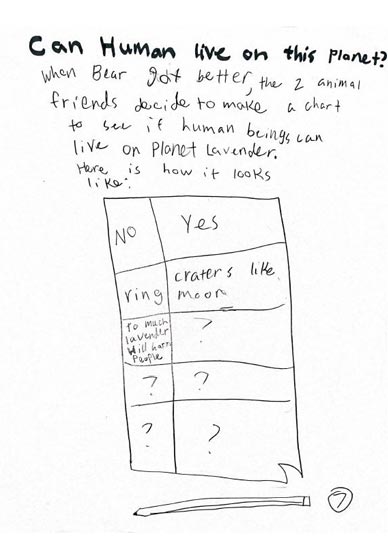 Can Human live on this Planet?
When Bear got better, the 2 animal
friends decide to make a chart
to see if human beings can
live on Planet Lavender.
Here is how it looks
like:
NO Yes
ring craters like
moon
To much ?
lavender
will harm
People
? ?
? ?
7